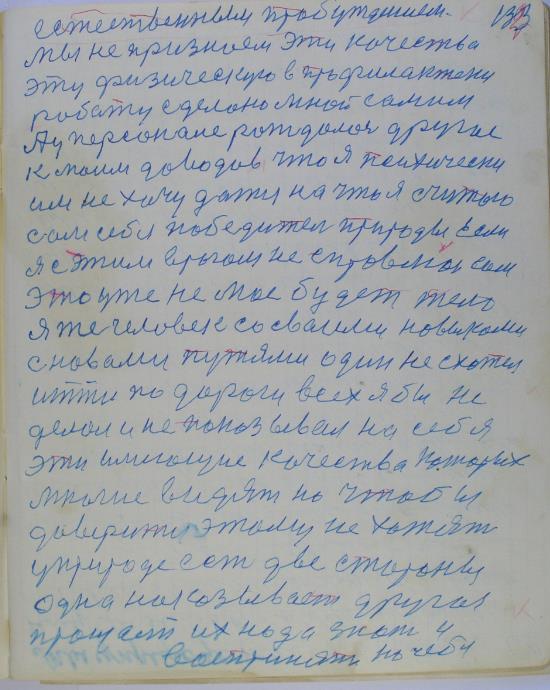 133
естественным пробуждением.
мы не признаем эти качества
эту физическую в профилактени
работу сделоно мной самим
Ау персонале рождалось другое
к моим доводов что я психически
им не хочу дажи на что я считаю
сам себя победител природы если
я с этим врагом не справлюсь сам
Это уже не мое будет тело
я же человек со сваими новиками
с новами путями один не схотел
итти по дороги всех я бы не
делал и не показывал на себя
эти имеющие качества которих
многие видят но чтобы
доверити этому не хотят
у природе ест две стороны
одна наказывает другая
прощает их нада знат и
восприняти на себя